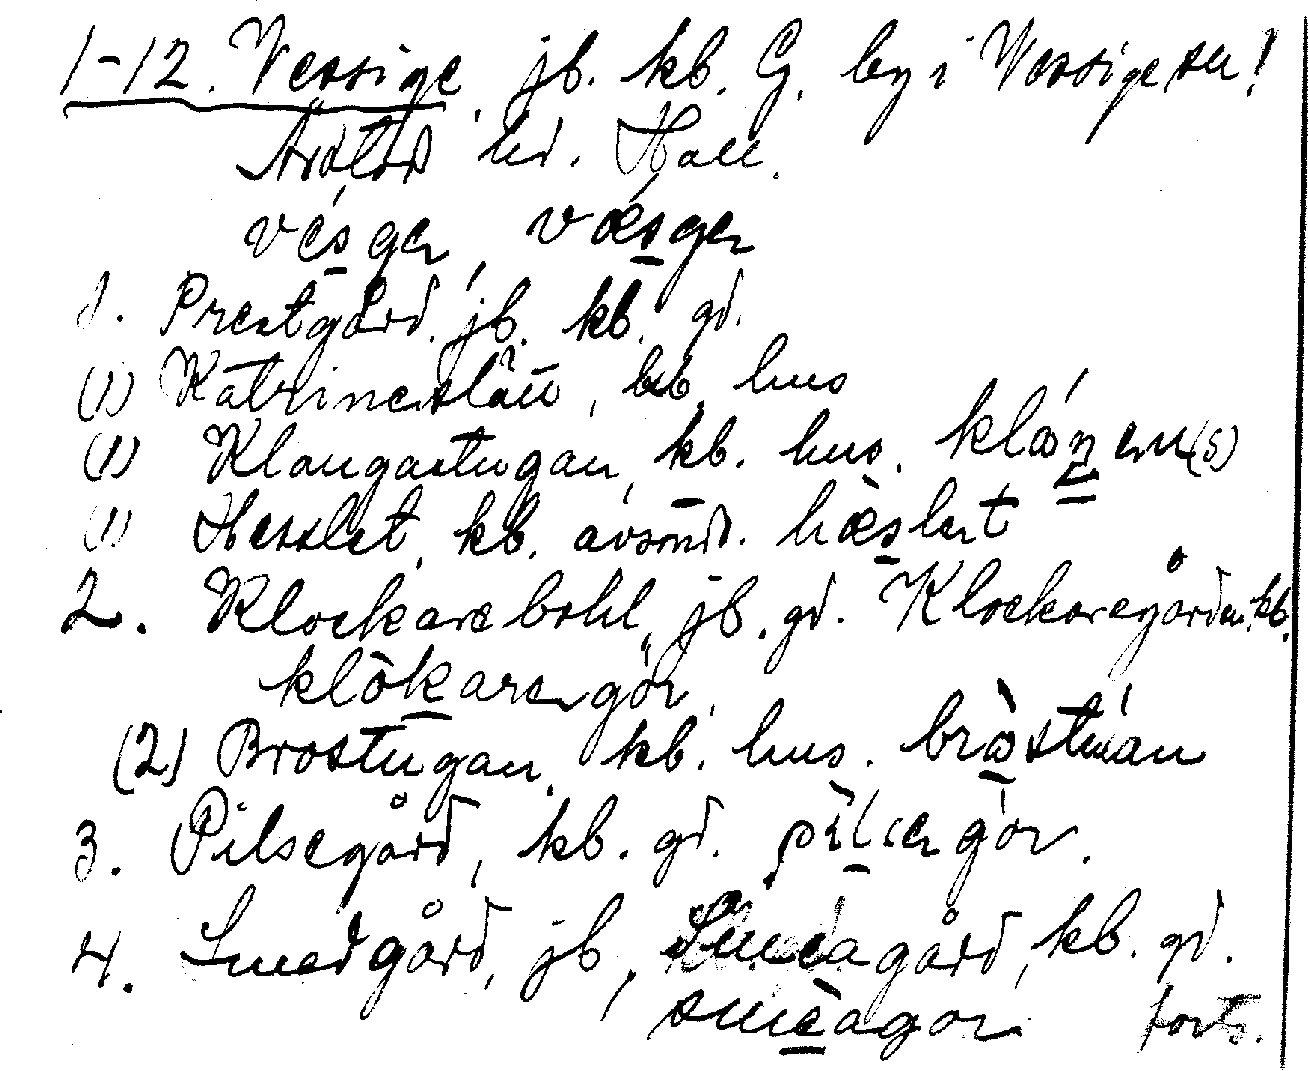 1-12. Vessige, jb. kb. G. by i Vessige sn!
Årstad hd. Hall.
vésger, vǽsger
1. Prestgård, jb. kb. gd.
(1) Katrineslätt, kb. hus
(1) Klangastugan, kb. hus.
(1) Hesslet, kb. avsönd. hæ̀slert
2. Klockarebohl, jb. gd. Klockaregården kb.
klòkarer gör,
(2) Brostugan, kb. hus. bròstúan
3. Pilsegård, kb. gd. pìlser gór.
4. Smedgård, jb, Smeagård, kb. gd.
smèagor forts.